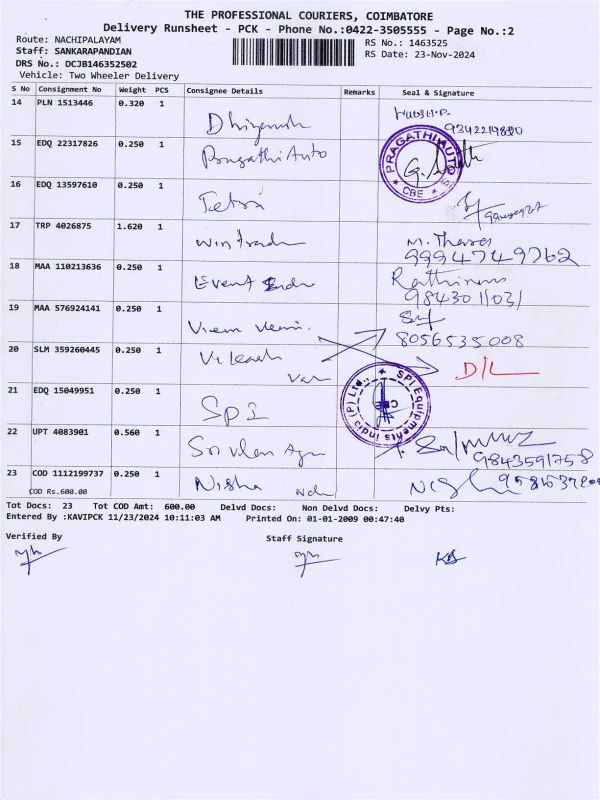 THE PROFESSIONAL COURIERS, COIMBATORE
Delivery Runsheet - PCK - Phone No.:0422-3505555 - Page No.:2
Route: NACHIPALAYAM
RS No.: 1463525
Staff: SANKARAPANDIAN
RS Date: 23-Nov-2024
DRS No.: DCJB146352502
Vehicle: Two Wheeler Delivery
S No Consignment No Weight PCS Consignee Details Remarks Seal & Signature
14 PLN 1513446 0.320 1
15 EDQ 22317826 0.250 1 Pragathi Auto
PRAGATHI AUTO CBE
16 EDQ 13597610 0.250 1
17 TRP 4026875 1.620 1 win trade
9994749762
18 MAA 110213636 0.250 1 Event
9843011031
19 MAA 576924141 0.250 1
8056535008
20 SLM 359260445 0.250 1 D/L
21 EDQ 15049951 0.250 1 SPI
SPI Equipments India (P) Ltd., CBE
22 UPT 4083901 0.560 1
9843591758
23 COD 1112199737 0.250 1 Nisha
COD Rs.600.00
Tot Docs: 23 Tot COD Amt: 600.00 Delvd Docs: Non Delvd Docs: Delvy Pts:
Entered By :KAVIPCK 11/23/2024 10:11:03 AM Printed On: 01-01-2009 00:47:40
Verified By Staff Signature